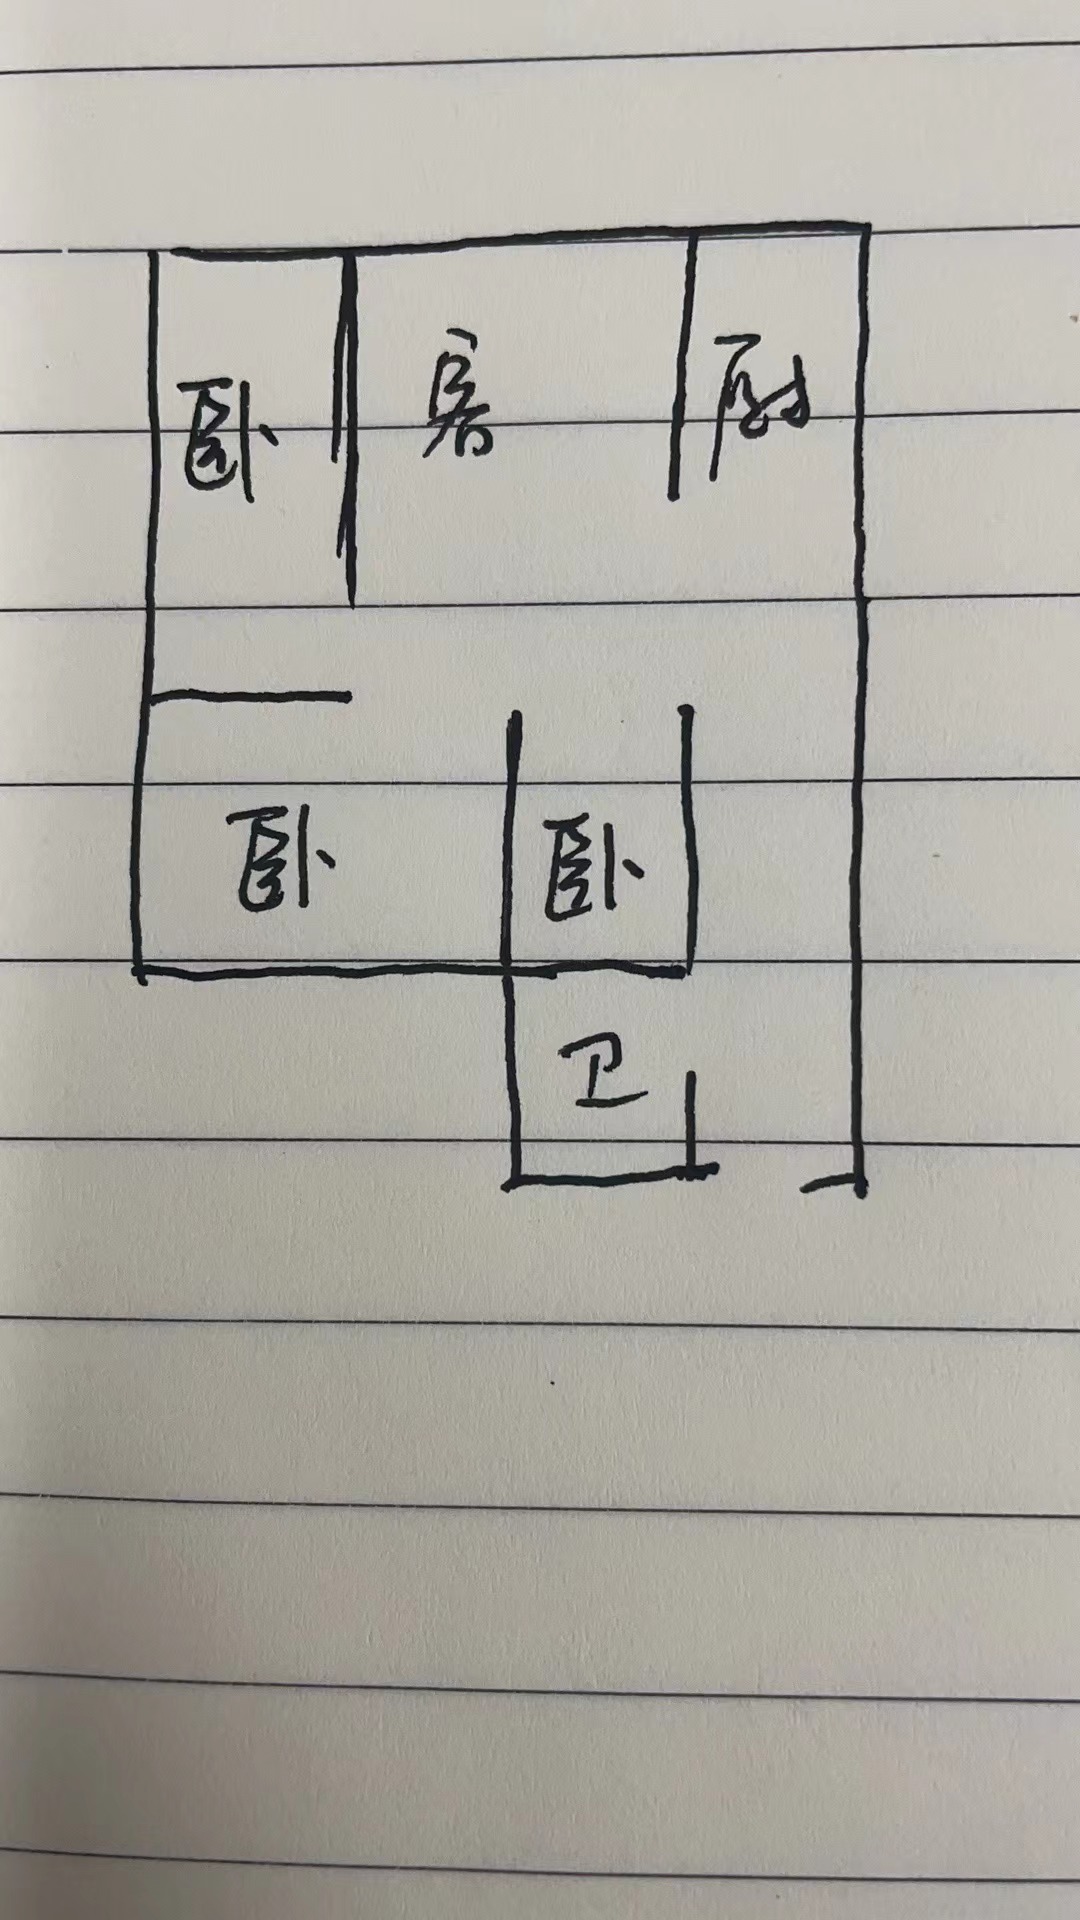 卧 客 厨
卧 卧
卫